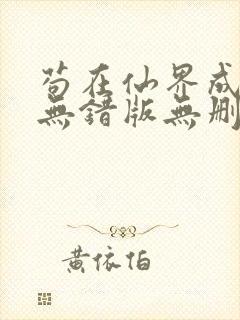 苟在仙界成
無錯版無刪
黄依怕